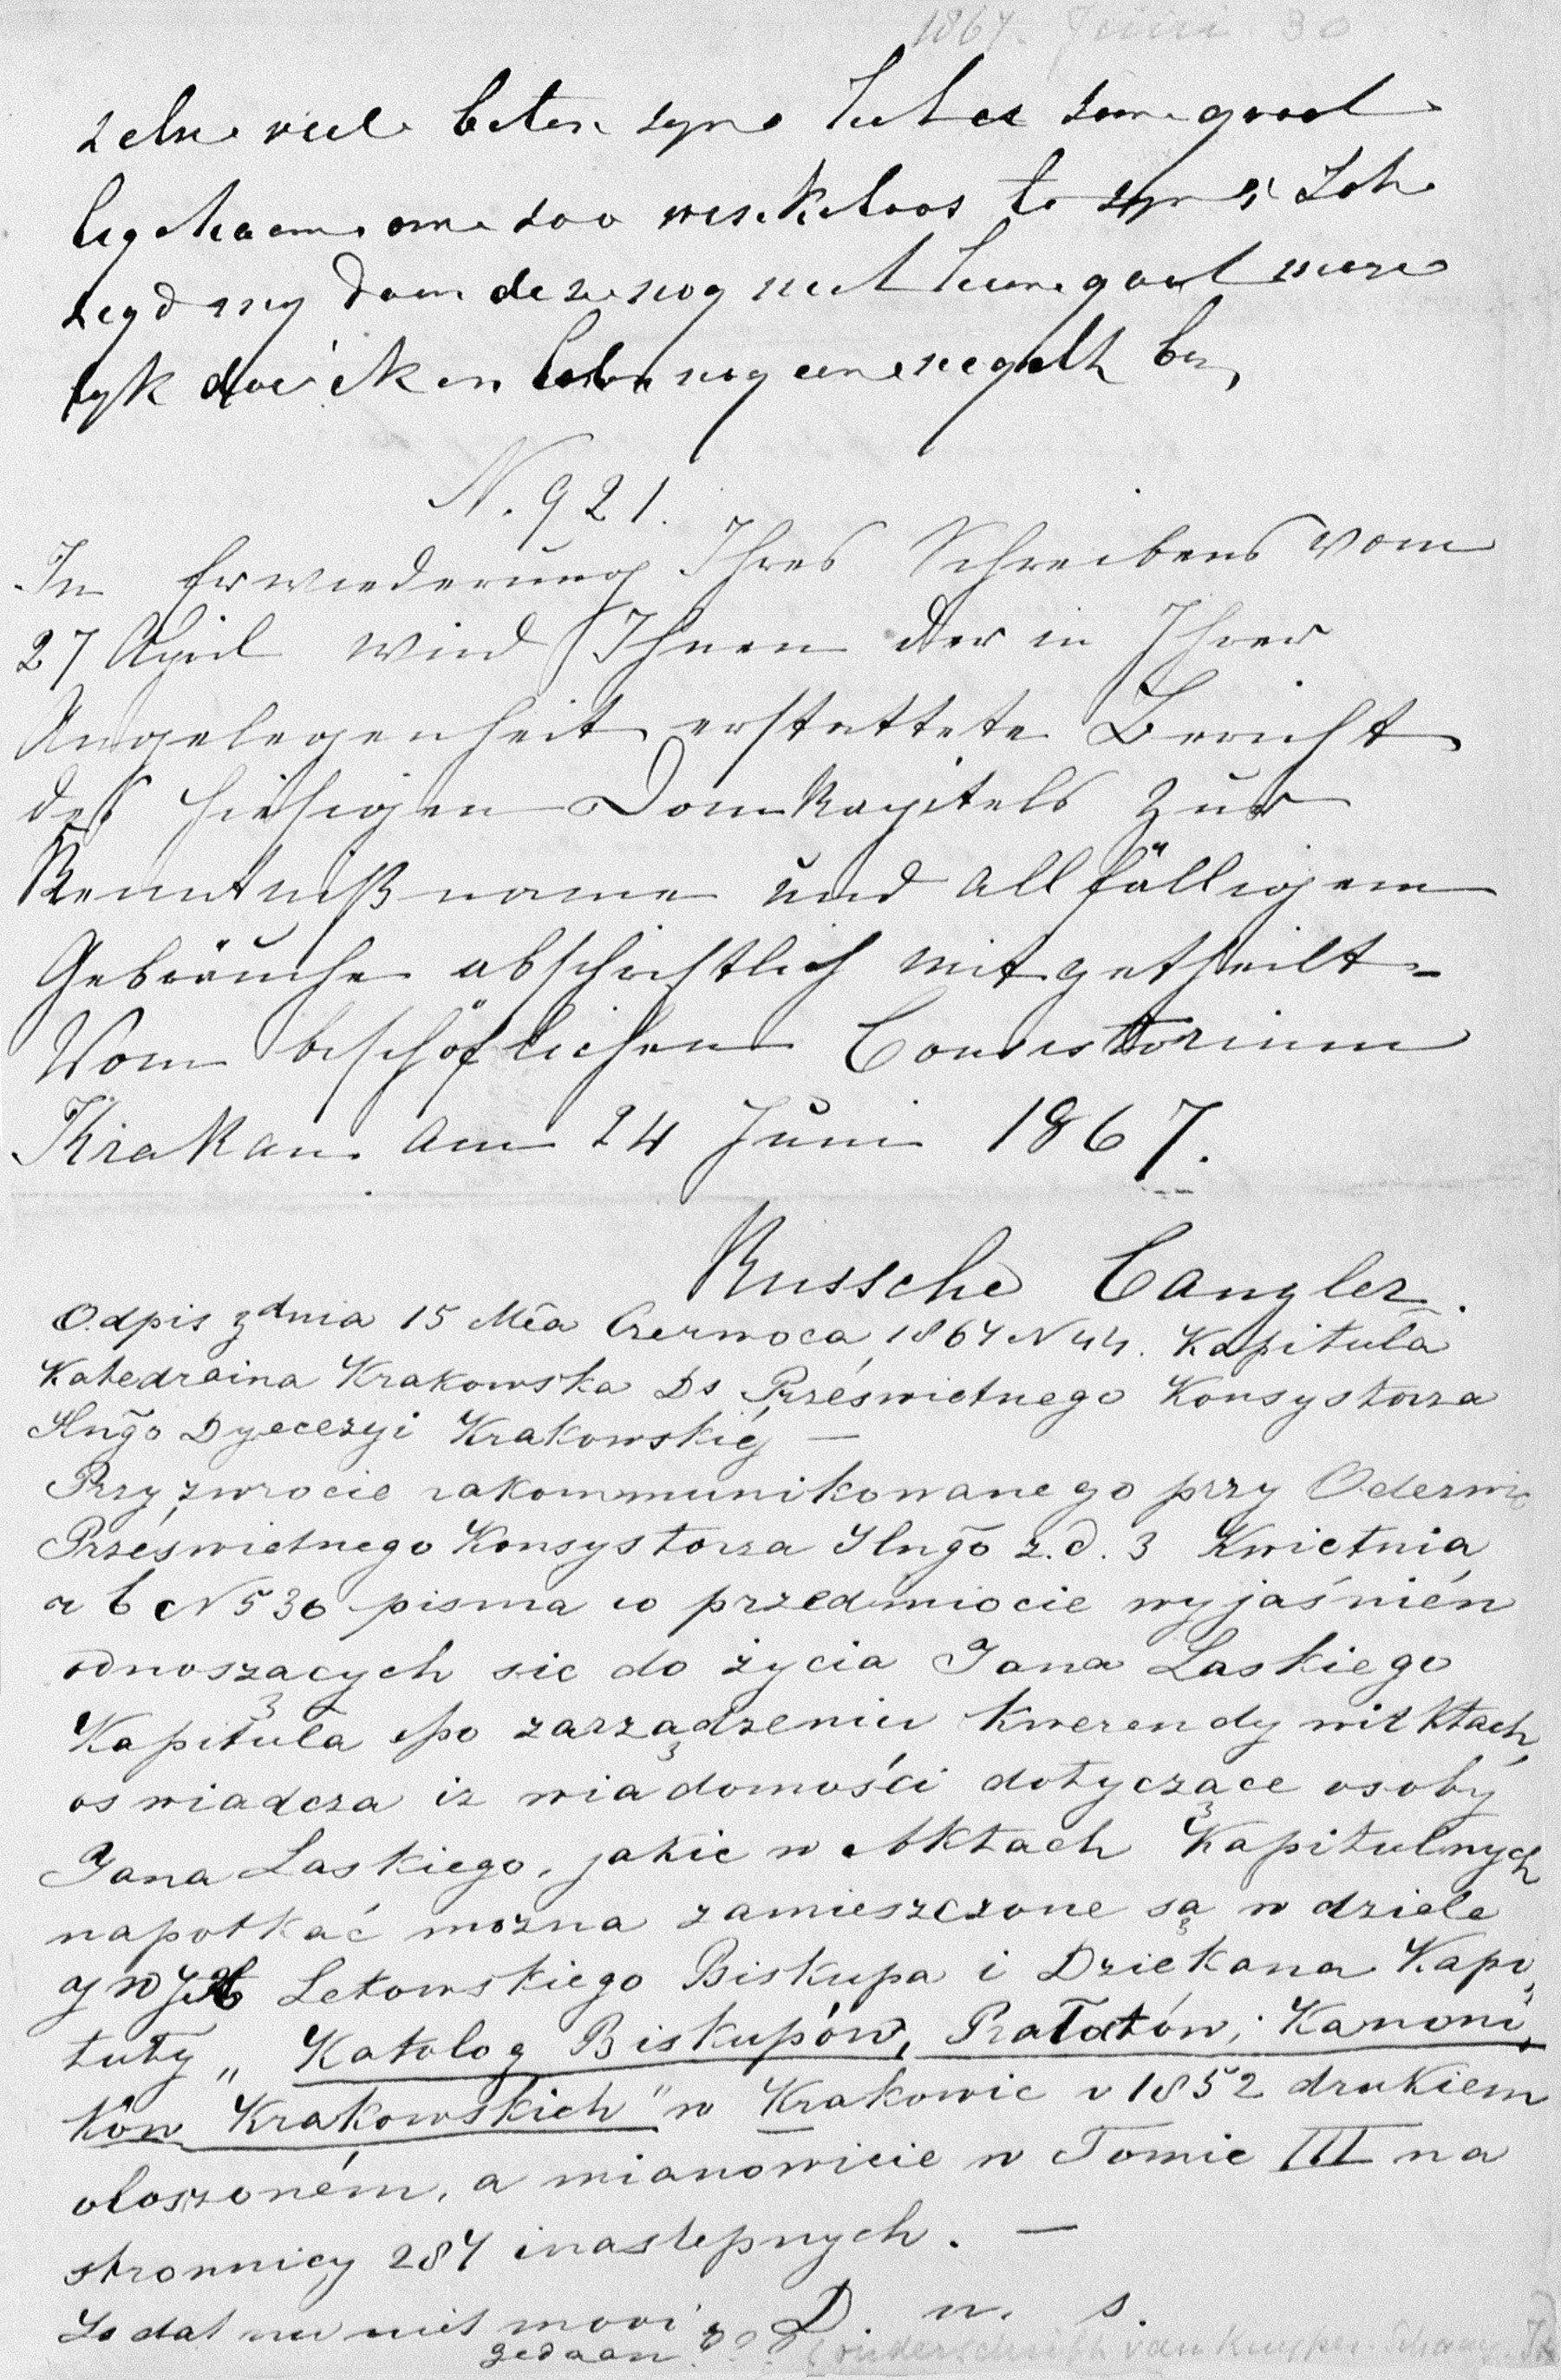 1867. Juni 30
zelve veel beter zyn. Het is zeer goed
ligchaam om zoo werkeloos te zyn
zegd my deze nog niet
lyk doe ik en nog een
N. 921.
In Erwiederung Ihres Schreibens vom
27 April wird Ihnen der in Ihrer
Angelegenheit erstattete Bericht
des hiesigen Domkapitels zur
Kenntnißname und allfälligem
Gebräuche abschriftlich mitgetheilt
Vom bischöflichen Consistorium
Krakau am 24 Juni 1867.
Russche Canzler.
Odpis z dnia 15 Mca Czerwca 1867 N 44. Kapituła
Katedralna Krakowska Do Prześwietnego Konsystorza
Jlngo Dyecezyi Krakowskiéj —
Przy zwrocie zakommunikowanego przy Odezwie
Prześwietnego Konsystorza Jlngo z. d. 3 Kwietnia
r b N 530 pisma w przedmiocie wyjaśnień
odnoszących sie do życia Jana Laskiego
Kapituła po zarządzeniu Kwerendy w Aktach,
oswiadcza iz wiadomości dotyczące osoby
Jana Laskiego, jakie w Aktach Kapitulnych
napotkać mozna zamieszczone są w dziele
Letowskiego Biskupa i Dziekana Kapi
tuły „Katolog Biskupów, Prałatów i Kanoni
ków Krakowskich" w Krakowie r 1852 drukiem
oloszoném, a mianowicie w Tomie III na
stronnicy 287 i nastepnych. —
D. n. s.
Is dat nu niet mooi
gedaan???
(onderschrift van Kuyper-Schaay. Jr